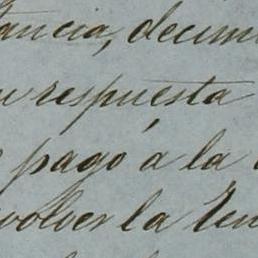 tancia, decim
respuesta
pagó á la
volver la